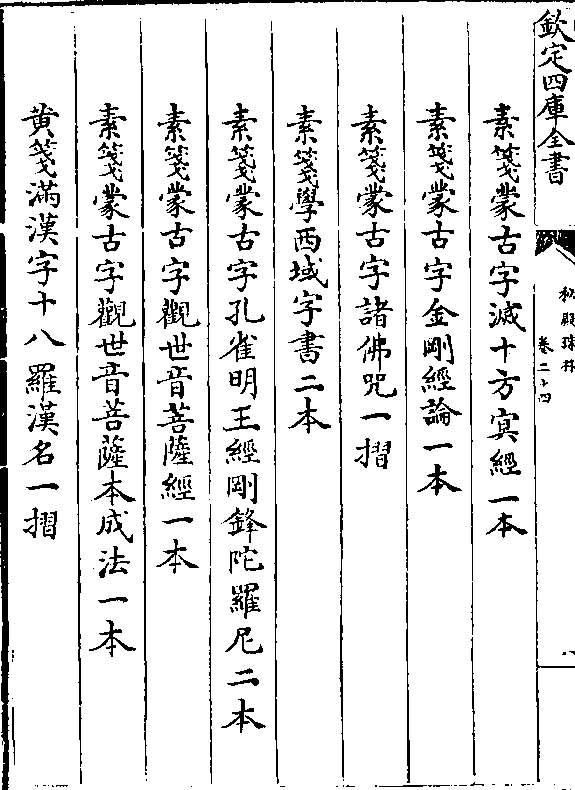 欽定四庫全書
秘殿珠林
卷二十四
素箋蒙古字滅十方㝠經一本
素箋蒙古字金剛經論一本
素箋蒙古字諸佛咒一摺
素箋學西域字書二本
素箋蒙古字孔雀明王經剛鋒陀羅尼二本
素箋蒙古字觀世音菩薩經一本
素箋蒙古字觀世音菩薩本成法一本
黃箋滿漢字十八羅漢名一摺